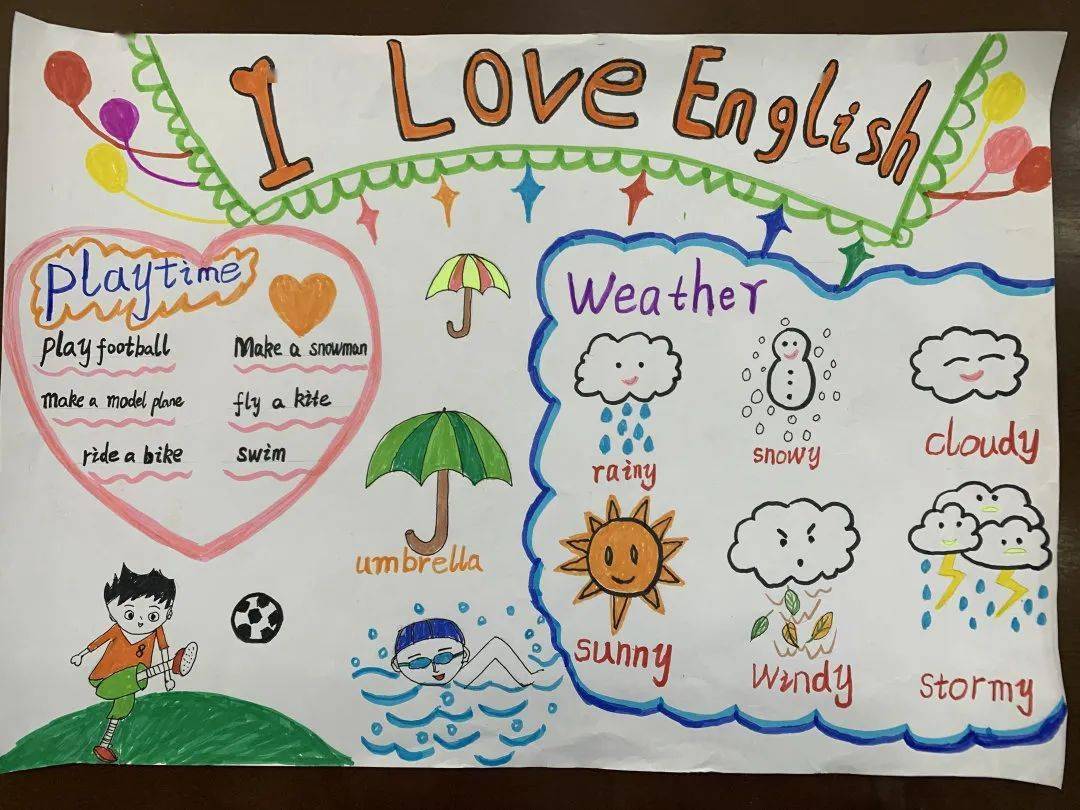 I Love English
Playtime
play football
Make a snowman
make a model plane
fly a kite
ride a bike
swim
umbrella
8
Weather
rainy
snowy
cloudy
sunny
windy
stormy